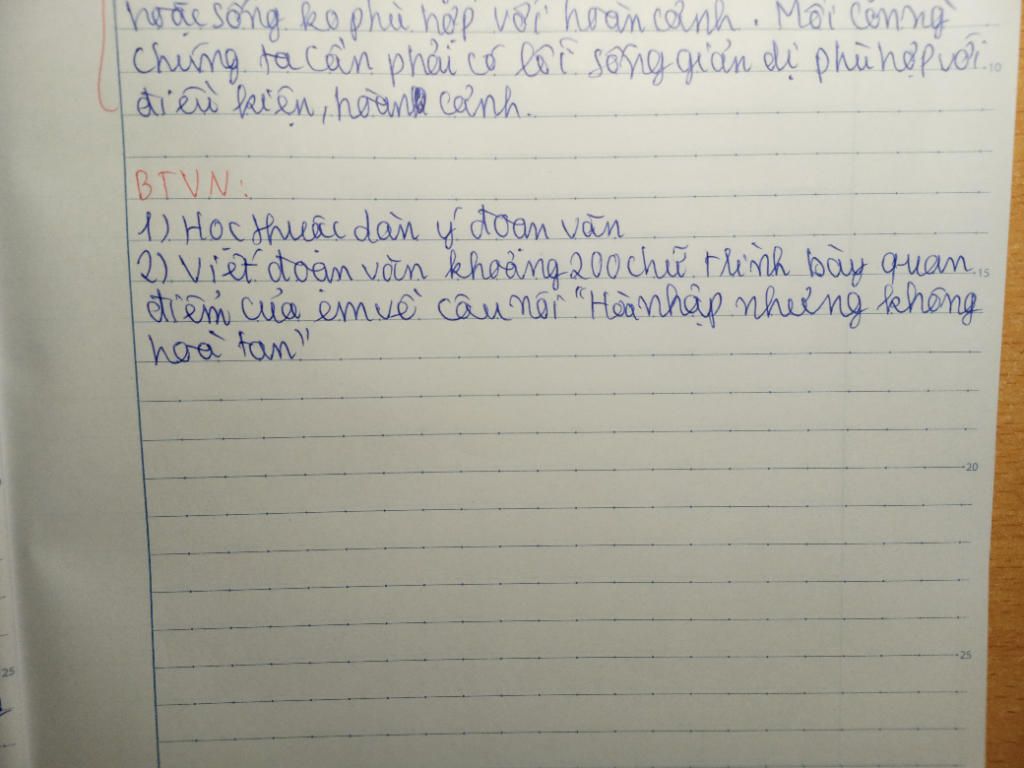 hoặc sống ko phù hợp với hoàn cảnh. Mỗi con ng
chúng ta cần phải có lối sống giản dị phù hợp với
điều kiện, hoàn cảnh.
10
BTVN:
1) Học thuộc dàn ý đoạn văn
2) Viết đoạn văn khoảng 200 chữ trình bày quan
15
điểm của em về câu nói "Hoà nhập nhưng không
hoà tan"
20
25
25